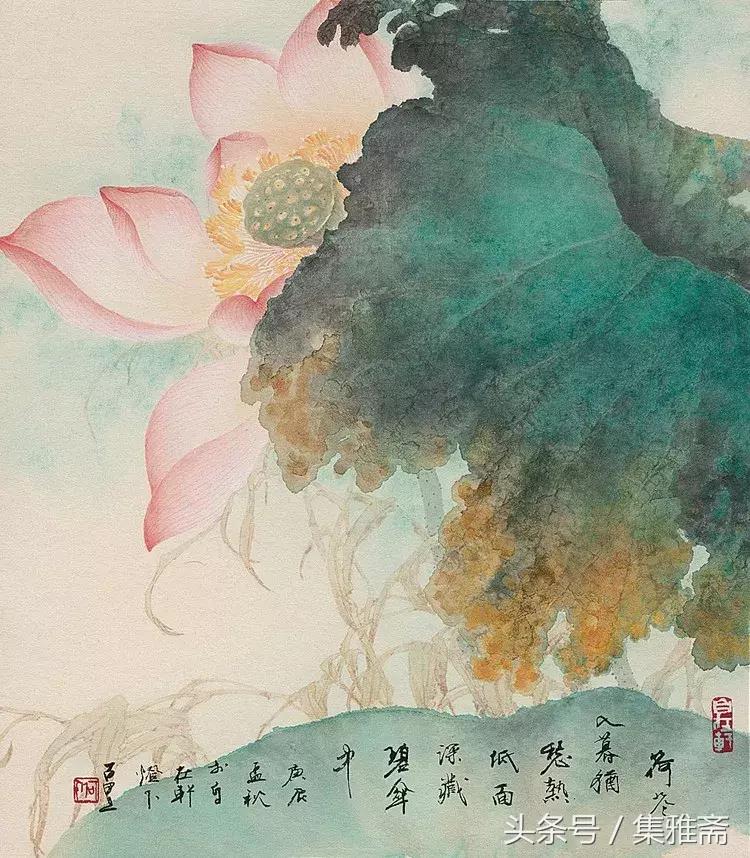 荷花
入暮猶
愁熱
低面
深藏
碧傘
中
庚辰
孟秋
於自
在軒
燈下
自在軒
头条号 / 集雅斋